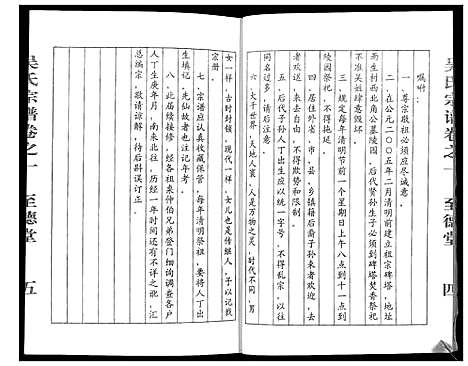 吴氏宗谱卷之一　至德堂　四
嘱咐：
一、尊宗敬祖必须应尽诚意。
二、在公元二００五年二月清明前建立祖宗碑塔，
而生村西北角公墓陵园，后代贤孙生子必须到碑塔焚香祭祀
不准吴姓肆意毁坏。
三、规定每年清明节前一个星期日上午八点到十一点到
陵园祭祀，不得拖延。
四、居住外省、市、县、乡镇籍后裔子孙来者欢迎，去
者欢送，不得有欺势和限制。
五、后代子孙人丁出生应以统一字号，不得乱宗，以往
同名过多，请后注意。
六、大千世界，天地人寰，人是万物之灵，时代不同，男
女一样，古时封锁，现代一样，女儿也是传继人，予以记载
宗册。
七、宗谱应认真收藏保管，每年清明祭祖，要将人丁出
生填记，先仙故者也注记年考。
八、此届续接修，经各祖来仲伯兄弟登门细询调查各户
人丁生卒年月，南来北往，历经一年时间还有不详之疵，汇
总编宗，敬请谅解，待后斟误订正。
吴氏宗谱卷之一　至德堂　五